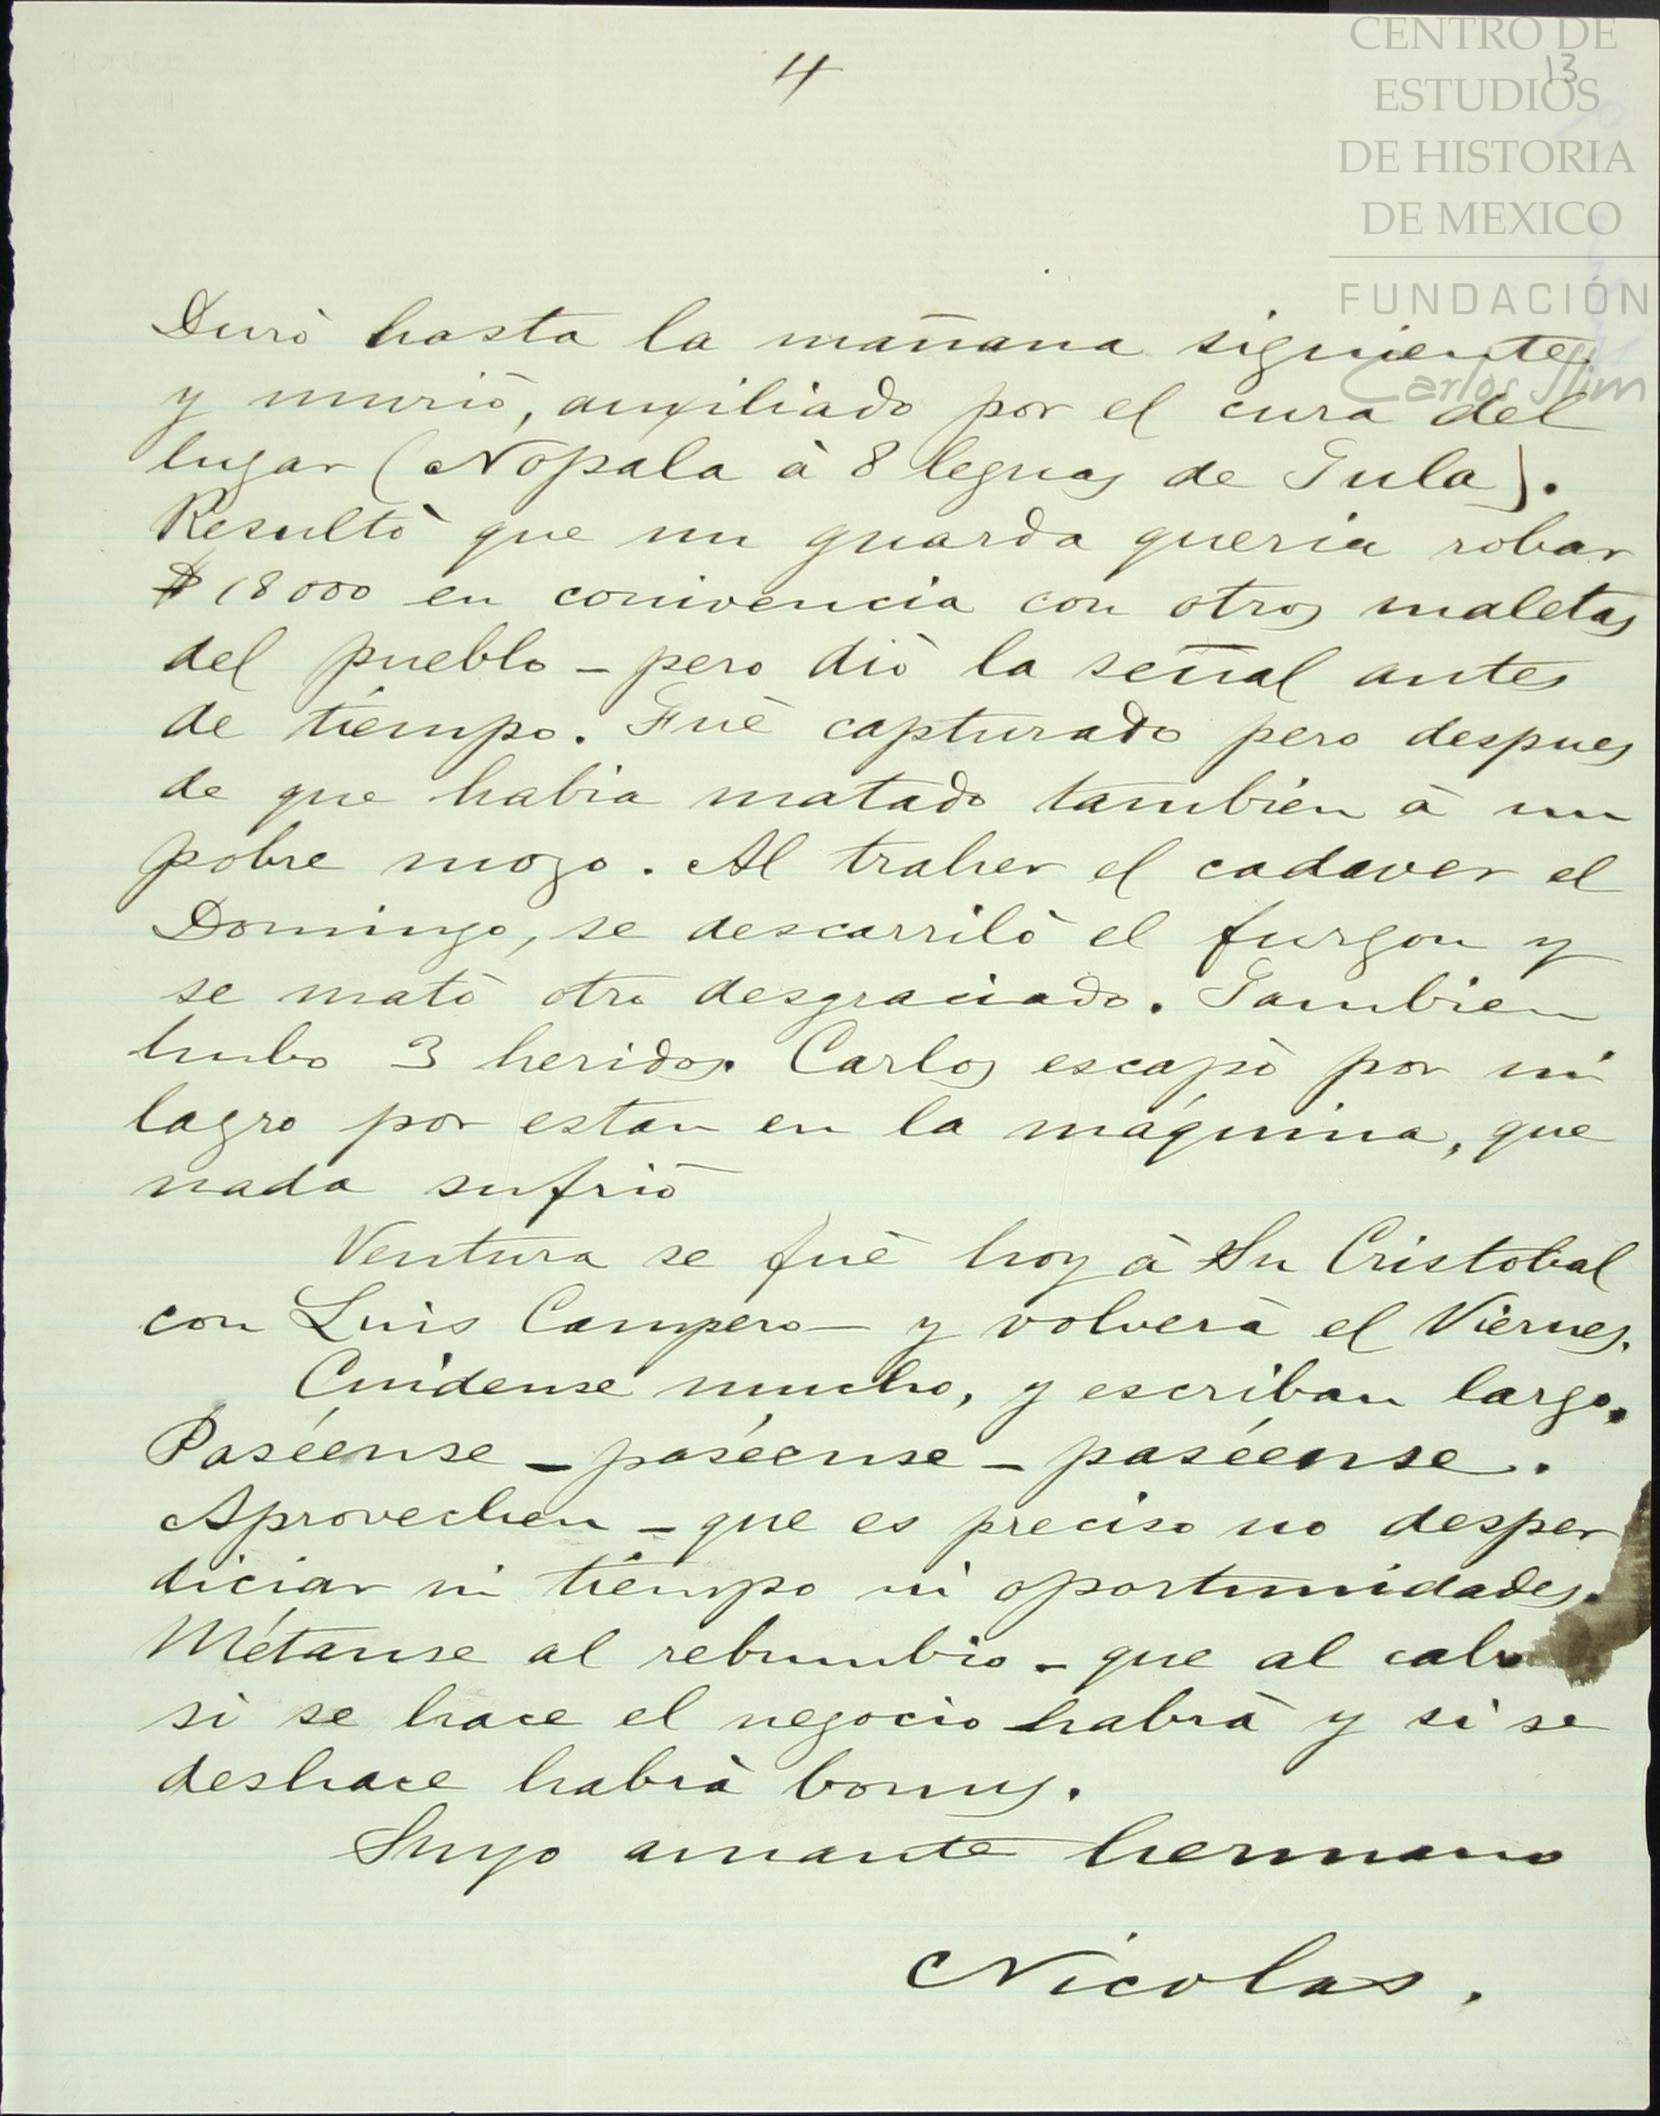 4
13
CENTRO DE
ESTUDIOS
DE HISTORIA
DE MEXICO
FUNDACIÓN
Carlos Slim
Duró hasta la mañana siguiente
y murió, auxiliado por el cura del
lugar (Nopala à 8 leguas de Tula).
Resultò que un guarda queria robar
$18000 en conivencia con otros maletas
del pueblo - pero diò la señal antes
de tiempo. Fuè capturado pero despues
de que habia matado tambien à un
pobre mozo. Al traher el cadaver el
Domingo, se descarrilò el furgon y
se matò otro desgraciado. Tambien
hubo 3 heridos. Carlos escapò por mi
lagro por estar en la máquina, que
nada sufriò
Ventura se fuè hoy à Sn Cristobal
con Luis Campero - y volverà el Viernes.
Cuidense mucho, y escriban largo.
Paséense - paséense - paséense.
Aprovechen - que es preciso no desper
diciar ni tiempo ni oportunidades.
Métanse al rebumbio - que al cabo
si se hace el negocio habrà y si se
deshace habrà bonus.
Suyo amante hermano
Nicolas.